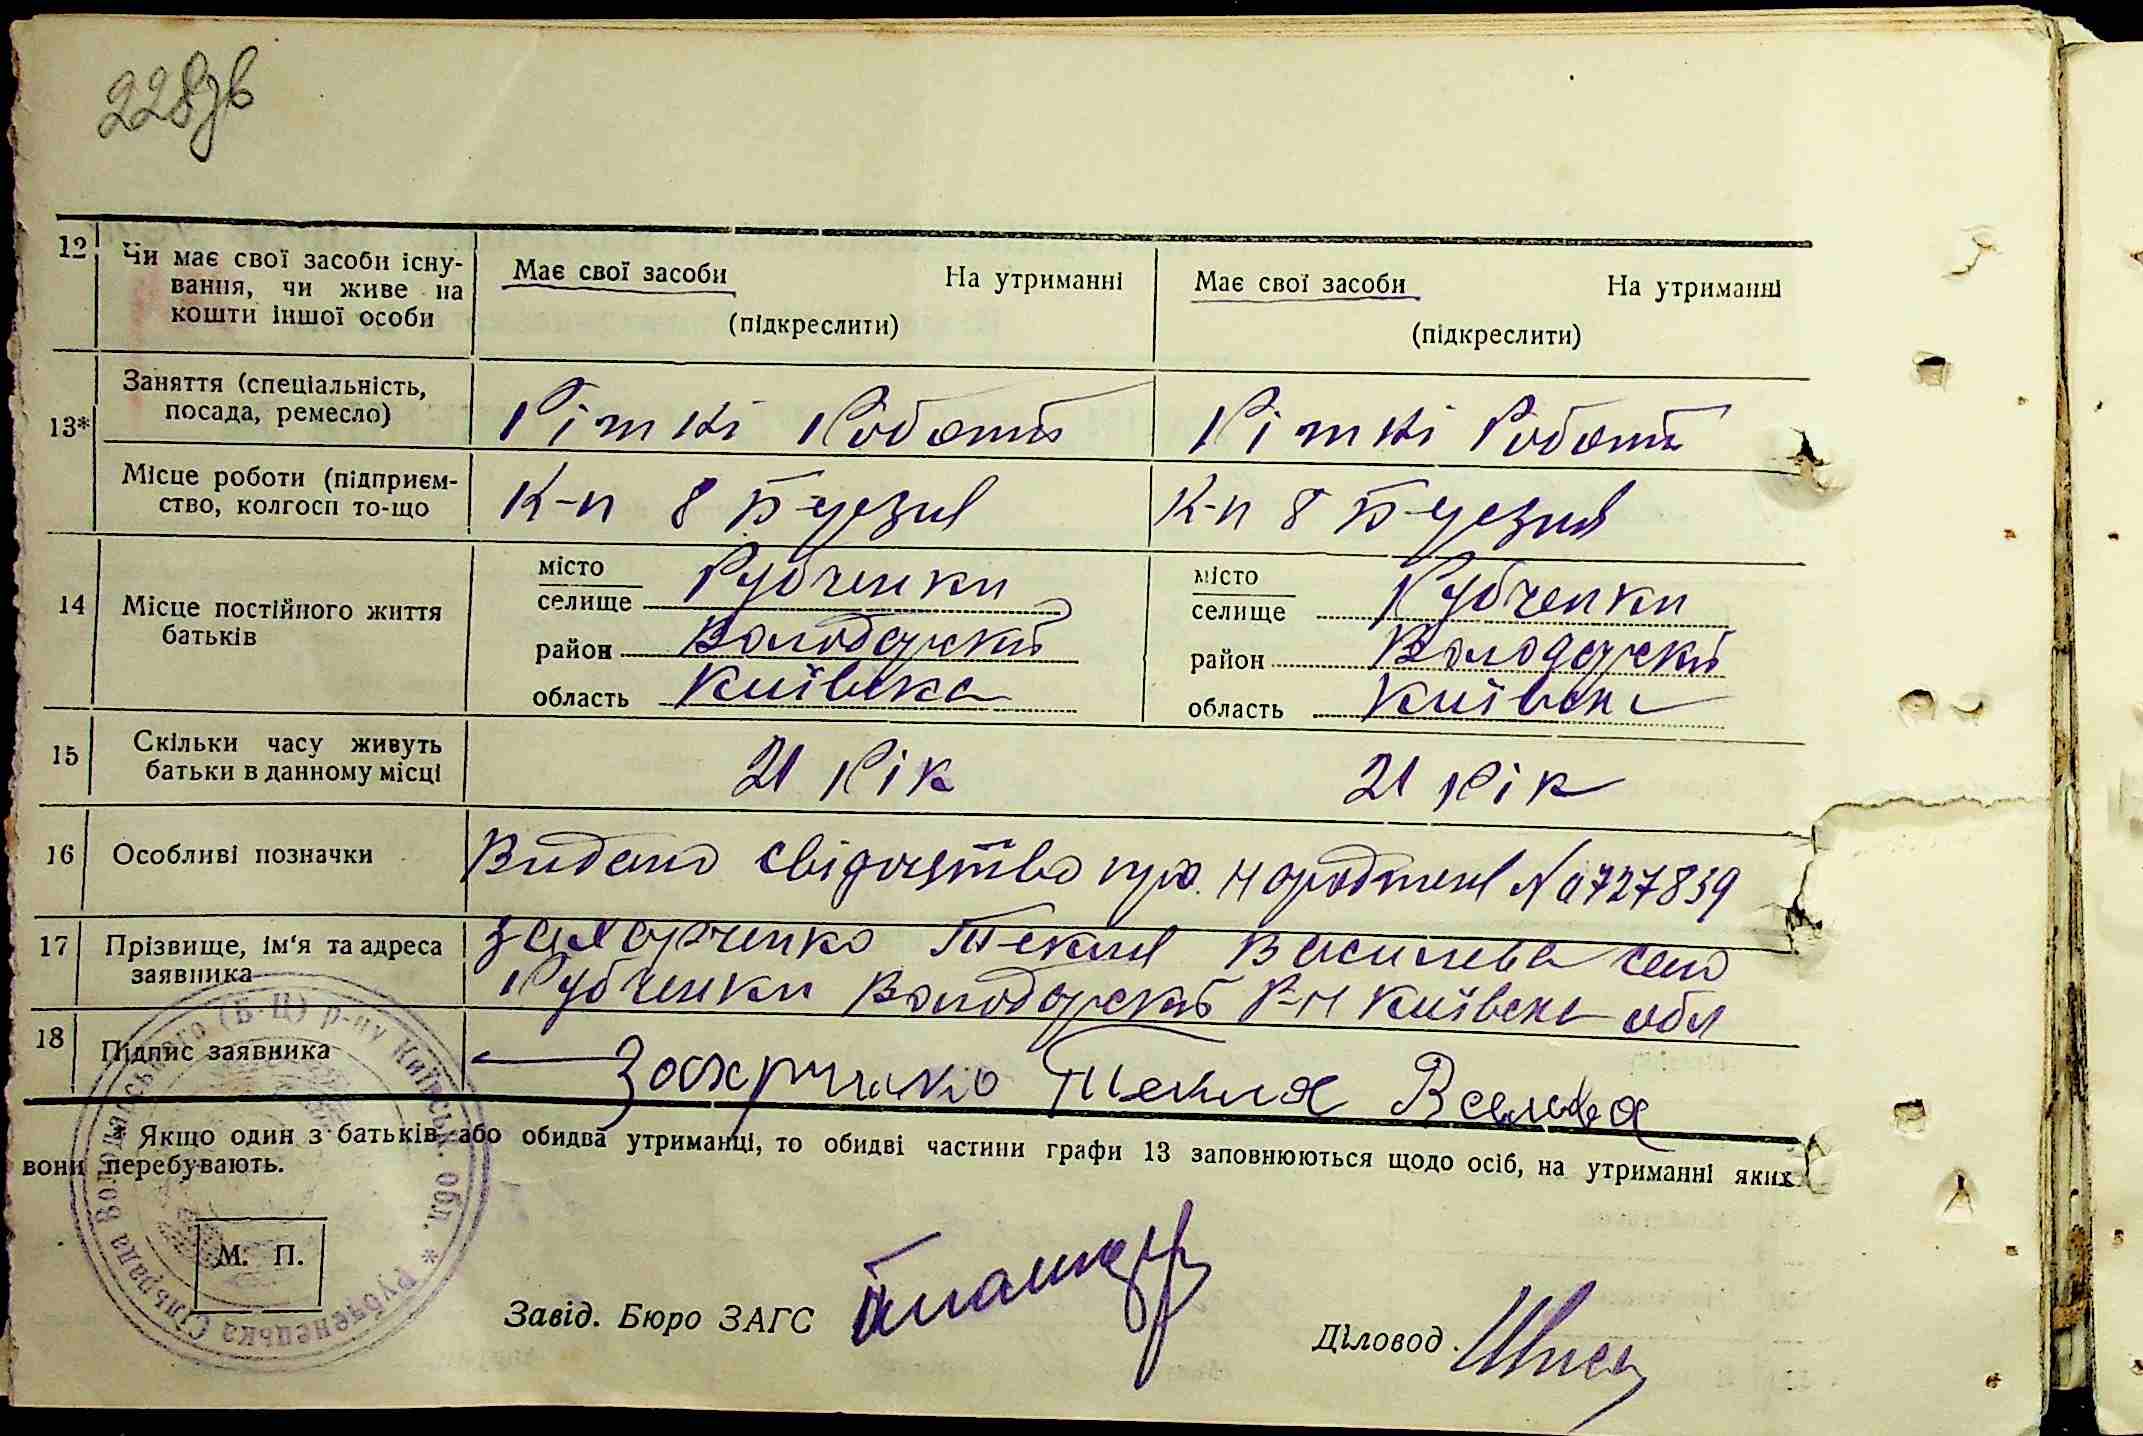 228зв
12 Чи має свої засоби існу-
вання, чи живе на
кошти іншої особи
Має свої засоби На утриманні
(підкреслити)
Має свої засоби На утриманні
(підкреслити)
13*
Заняття (спеціальність,
посада, ремесло)
Різні Роботи
Різні Роботи
Місце роботи (підприєм-
ство, колгосп то-що
К-п 8 Б-резня
К-п 8 Б-резня
14 Місце постійного життя
батьків
місто
селище Рубченки
район Володарский
область Київська
місто
селище Рубченки
район Володарский
область Київська
15 Скільки часу живуть
батьки в данному місці
21 Рік
21 Рік
16 Особливі позначки
Видано свідоцтво про народження № 0727839
17 Прізвище, ім'я та адреса
заявника
Захарченко Текля Василева село
Рубченки Володарский Р-н Київська обл
18 Підпис заявника
Захрчинко Текля
* Якщо один з батьків, або обидва утриманці, то обидві частини графи 13 заповнюються щодо осіб, на утриманні яких
вони перебувають.
Рубченецька Сільрада Володарського (Б-Ц) р-ну Київськ. обл. *
М. П.
Завід. Бюро ЗАГС
Діловод